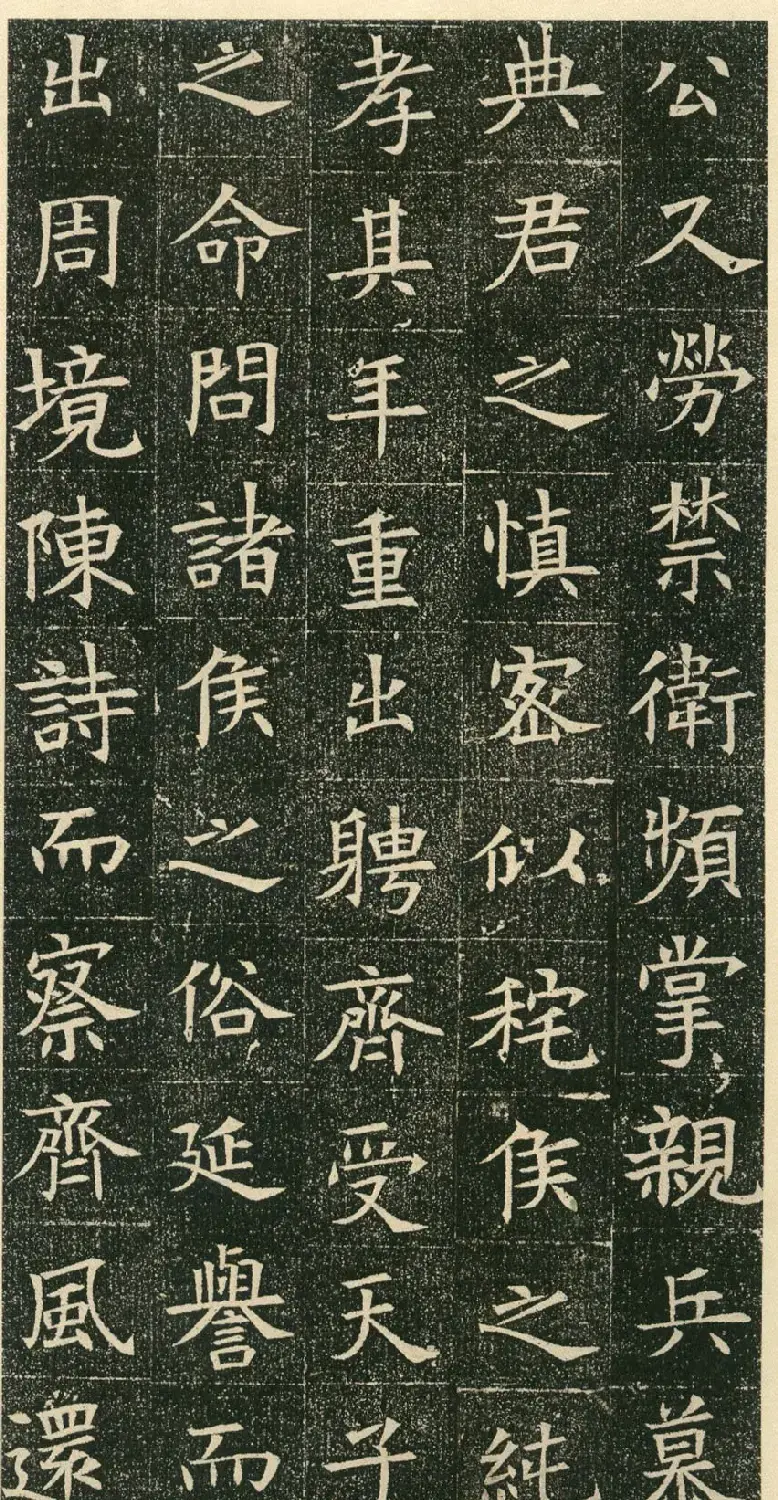 公久勞禁衛頻掌親兵慕
典君之慎密似秺侯之純
孝其年重出聘齊受天子
之命問諸侯之俗延譽而
出周境陳詩而察齊風還